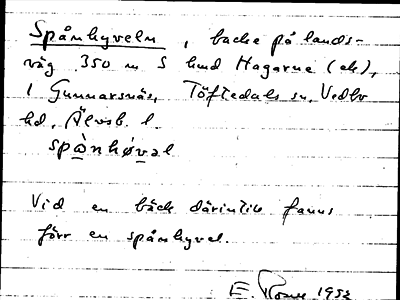 Spånhyveln, backe på lands-
väg 350 m S hmd Hagarne (ek),
i Gunnarsnäs, Töftedals sn, Vedbo
hd, Älvsb. l.
spånhøvəl
Vid en bäck därintill fanns
förr en spånhyvel.
E. 1953